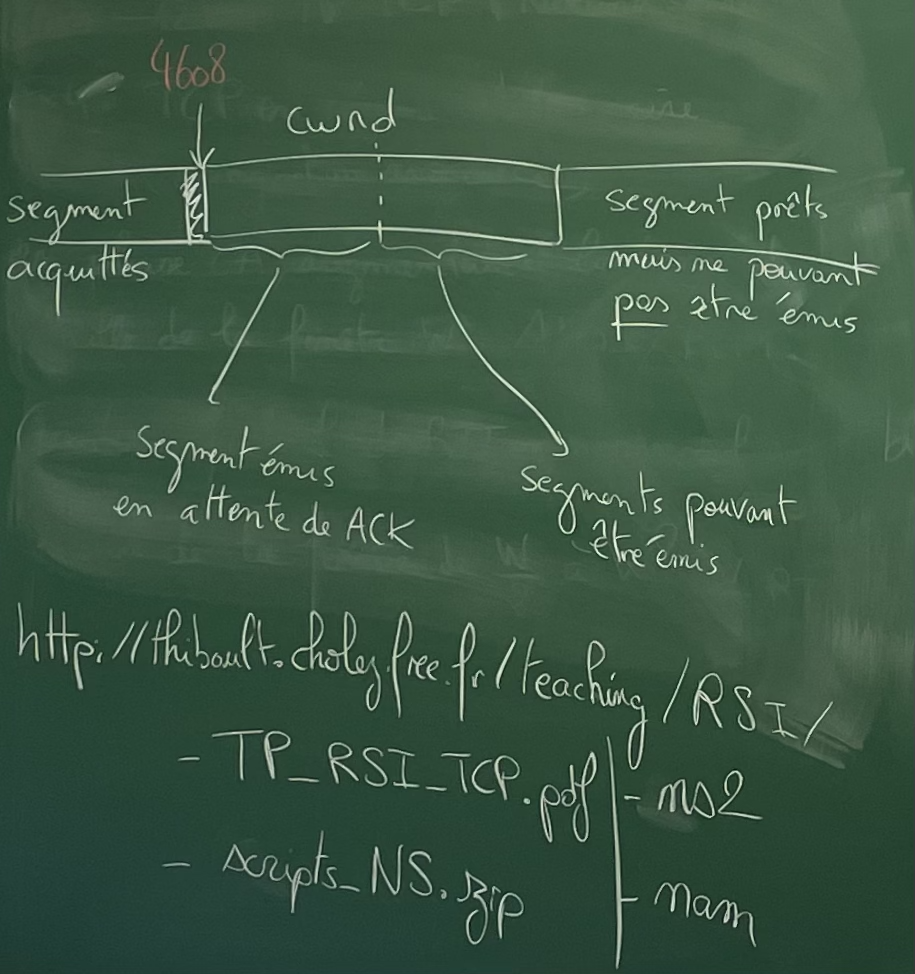 4608
cwnd
segment
acquittés
segment prêts
mais ne pouvant
pas être émis
segment émis
en attente de ACK
segments pouvant
être émis
http://thibault.cholez.free.fr/teaching/RSI/
- TP_RSI_TCP.pdf
- ns2
- scripts_NS.zip
- nam